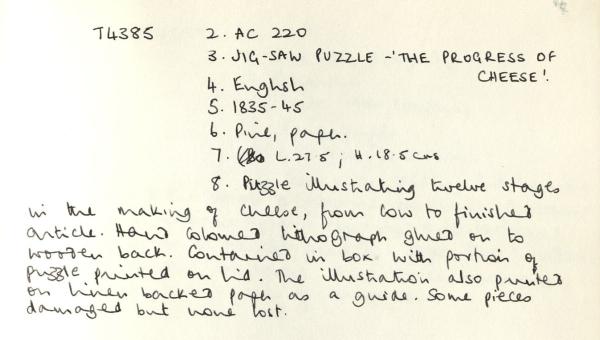 T4385 2. AC 220
3. JIG-SAW PUZZLE - 'THE PROGRESS OF
CHEESE'.
4. English
5. 1835-45
6. Pine, paper.
7. L.27.5; H.18.5 cms
8. Puzzle illustrating twelve stages
in the making of cheese, from cow to finished
article. Hand coloured lithograph glued on to
wooden back. Contained in box with portion of
puzzle printed on lid. The illustration also printed
on linen backed paper as a guide. Some pieces
damaged but none lost.